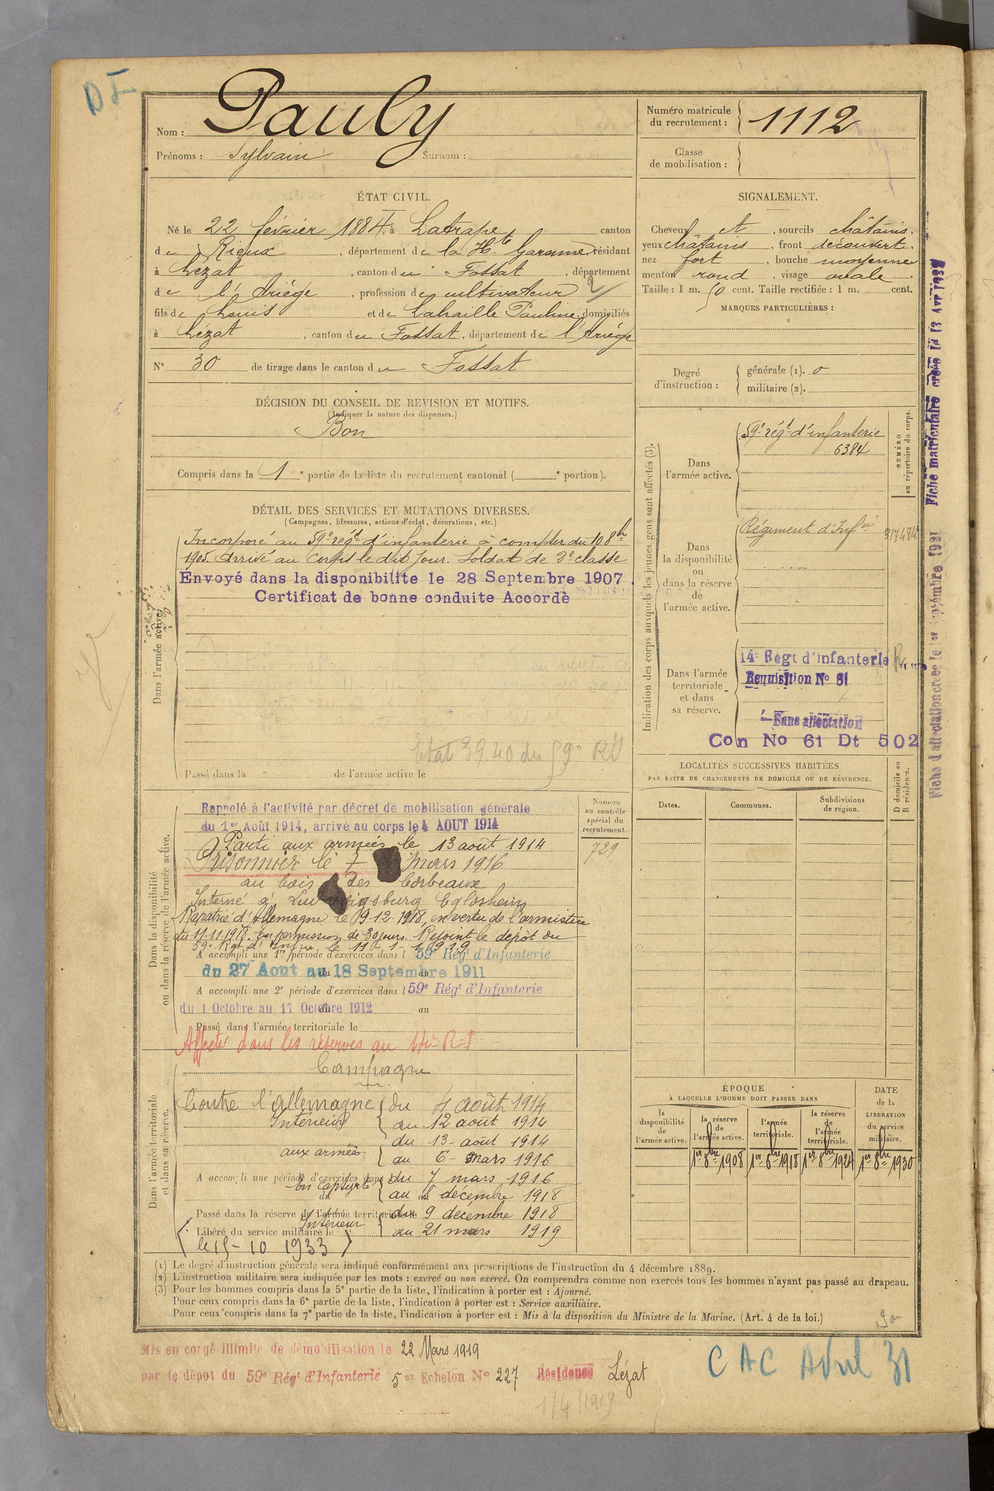 DF
Nom : Pauly
Prénoms : Sylvain Surnom :
Numéro matricule du recrutement : 1112
Classe de mobilisation :
ÉTAT CIVIL.
Né le 22 février 1884, à Latrape, canton
de Rieux, département de la Hte Garonne, résidant
à Lézat, canton du Fossat, département
de l'Ariège, profession de cultivateur
fils de Louis et de Cahaille Pauline, domiciliés
à Lézat, canton du Fossat, département de l'Ariège
N° 30 de tirage dans le canton du Fossat
SIGNALEMENT.
Cheveux et, sourcils châtains,
yeux châtains, front découvert,
nez fort, bouche moyenne
menton rond, visage ovale
Taille : 1 m. 50 cent. Taille rectifiée : 1 m. cent.
MARQUES PARTICULIÈRES :
Degré d'instruction : générale (1). 0
militaire (2).
DÉCISION DU CONSEIL DE REVISION ET MOTIFS.
(Indiquer la nature des dispenses.)
Bon
Compris dans la 1e partie de la liste du recrutement cantonal ( e portion).
DÉTAIL DES SERVICES ET MUTATIONS DIVERSES.
(Campagnes, blessures, actions d'éclat, décorations, etc.)
Dans l'armée active.
Incorporé au 59e régt d'infanterie à compter du 10 8bre
1905. Arrivé au Corps le dit Jour. Soldat de 2e classe
Envoyé dans la disponibilité le 28 Septembre 1907
Certificat de bonne conduite Accordé
Etat 39.40 du 59e RI
Passé dans la de l'armée active le
Indication des corps auxquels les jeunes gens sont affectés (3).
Dans l'armée active.
59e régt d'infanterie
6384
NUMÉRO au répertoire du corps.
Dans la disponibilité ou dans la réserve de l'armée active.
Régiment d'Infie
Dans l'armée territoriale et dans sa réserve.
14e Régt d'infanterie
Requisition No 61
Sans affectation
Con No 61 Dt 502
Fiche matriculaire créée le 13 Avr 1932
Fiche d'affectation créée le 1er Septembre 1921
LOCALITÉS SUCCESSIVES HABITÉES
PAR SUITE DE CHANGEMENTS DE DOMICILE OU DE RÉSIDENCE.
Dates. Communes. Subdivisions de région. D domicile ou R résidence.
Dans la disponibilité ou dans la réserve de l'armée active.
Numéro au contrôle spécial du recrutement.
729
Rappelé à l'activité par décret de mobilisation générale
du 1er Août 1914, arrivé au corps le 4 AOUT 1914
Parti aux armées le 13 août 1914
Prisonnier le 7 mars 1916
au bois des Corbeaux
Interné à Ludwigsburg Eglosheim
Rapatrié d'Allemagne le 9.12.1918 en vertu de l'armistice
du 11.11.1918. En permission de 30 jours. Rejoint le dépôt du
59e Rgt d'Infrie le 1919
A accompli une 1re période d'exercices dans l 59e Régt d'Infanterie
du 27 Aout au 18 Septembre 1911
A accompli une 2e période d'exercices dans l 59e Régt d'Infanterie
du 1 Octobre au 17 Octobre 1912 au
Passé dans l'armée territoriale le
Affecté dans les réserves au 14e R-I
Dans l'armée territoriale et dans sa réserve.
Campagne
Contre l'Allemagne du 4 Août 1914
Intérieur au 12 août 1914
du 13 août 1914
aux armées au 6 mars 1916
A accompli une période d'exercices dans
En captivité du 7 mars 1916
au 8 décembre 1918
Passé dans la réserve de l'armée territoriale le
du 9 décembre 1918
Intérieur
Libéré du service militaire le au 21 mars 1919
(le 15-10 1933)
ÉPOQUE
À LAQUELLE L'HOMME DOIT PASSER DANS
la disponibilité de l'armée active.
la réserve de l'armée active.
l'armée territoriale.
la réserve de l'armée territoriale.
DATE de la LIBÉRATION du service militaire.
1er 8bre 1908 1er 8bre 1918 1er 8bre 1924 1er 8bre 1930
(1) Le degré d'instruction générale sera indiqué conformément aux prescriptions de l'instruction du 4 décembre 1889.
(2) L'instruction militaire sera indiquée par les mots : exercé ou non exercé. On comprendra comme non exercés tous les hommes n'ayant pas passé au drapeau.
(3) Pour les hommes compris dans la 5e partie de la liste, l'indication à porter est : Ajourné.
Pour ceux compris dans la 6e partie de la liste, l'indication à porter est : Service auxiliaire.
Pour ceux compris dans la 7e partie de la liste, l'indication à porter est : Mis à la disposition du Ministre de la Marine. (Art. 4 de la loi.)
Mis en congé illimité de démobilisation le 22 Mars 1919
par le dépôt du 59e Régt d'Infanterie 5e Echelon No 227 Résidence Lézat
1/4/1919
CAC Avril 31